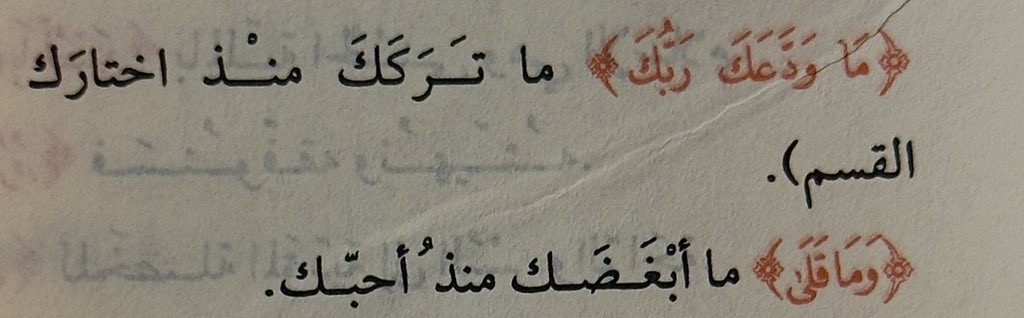 ﴿مَا وَدَّعَكَ رَبُّكَ﴾ ما تَـرَكَكَ منـْـذ اختارَك
القسم).
﴿وَمَا قَلَىٰ﴾ ما أبْغَـضَـك منذُ أحبّـك.